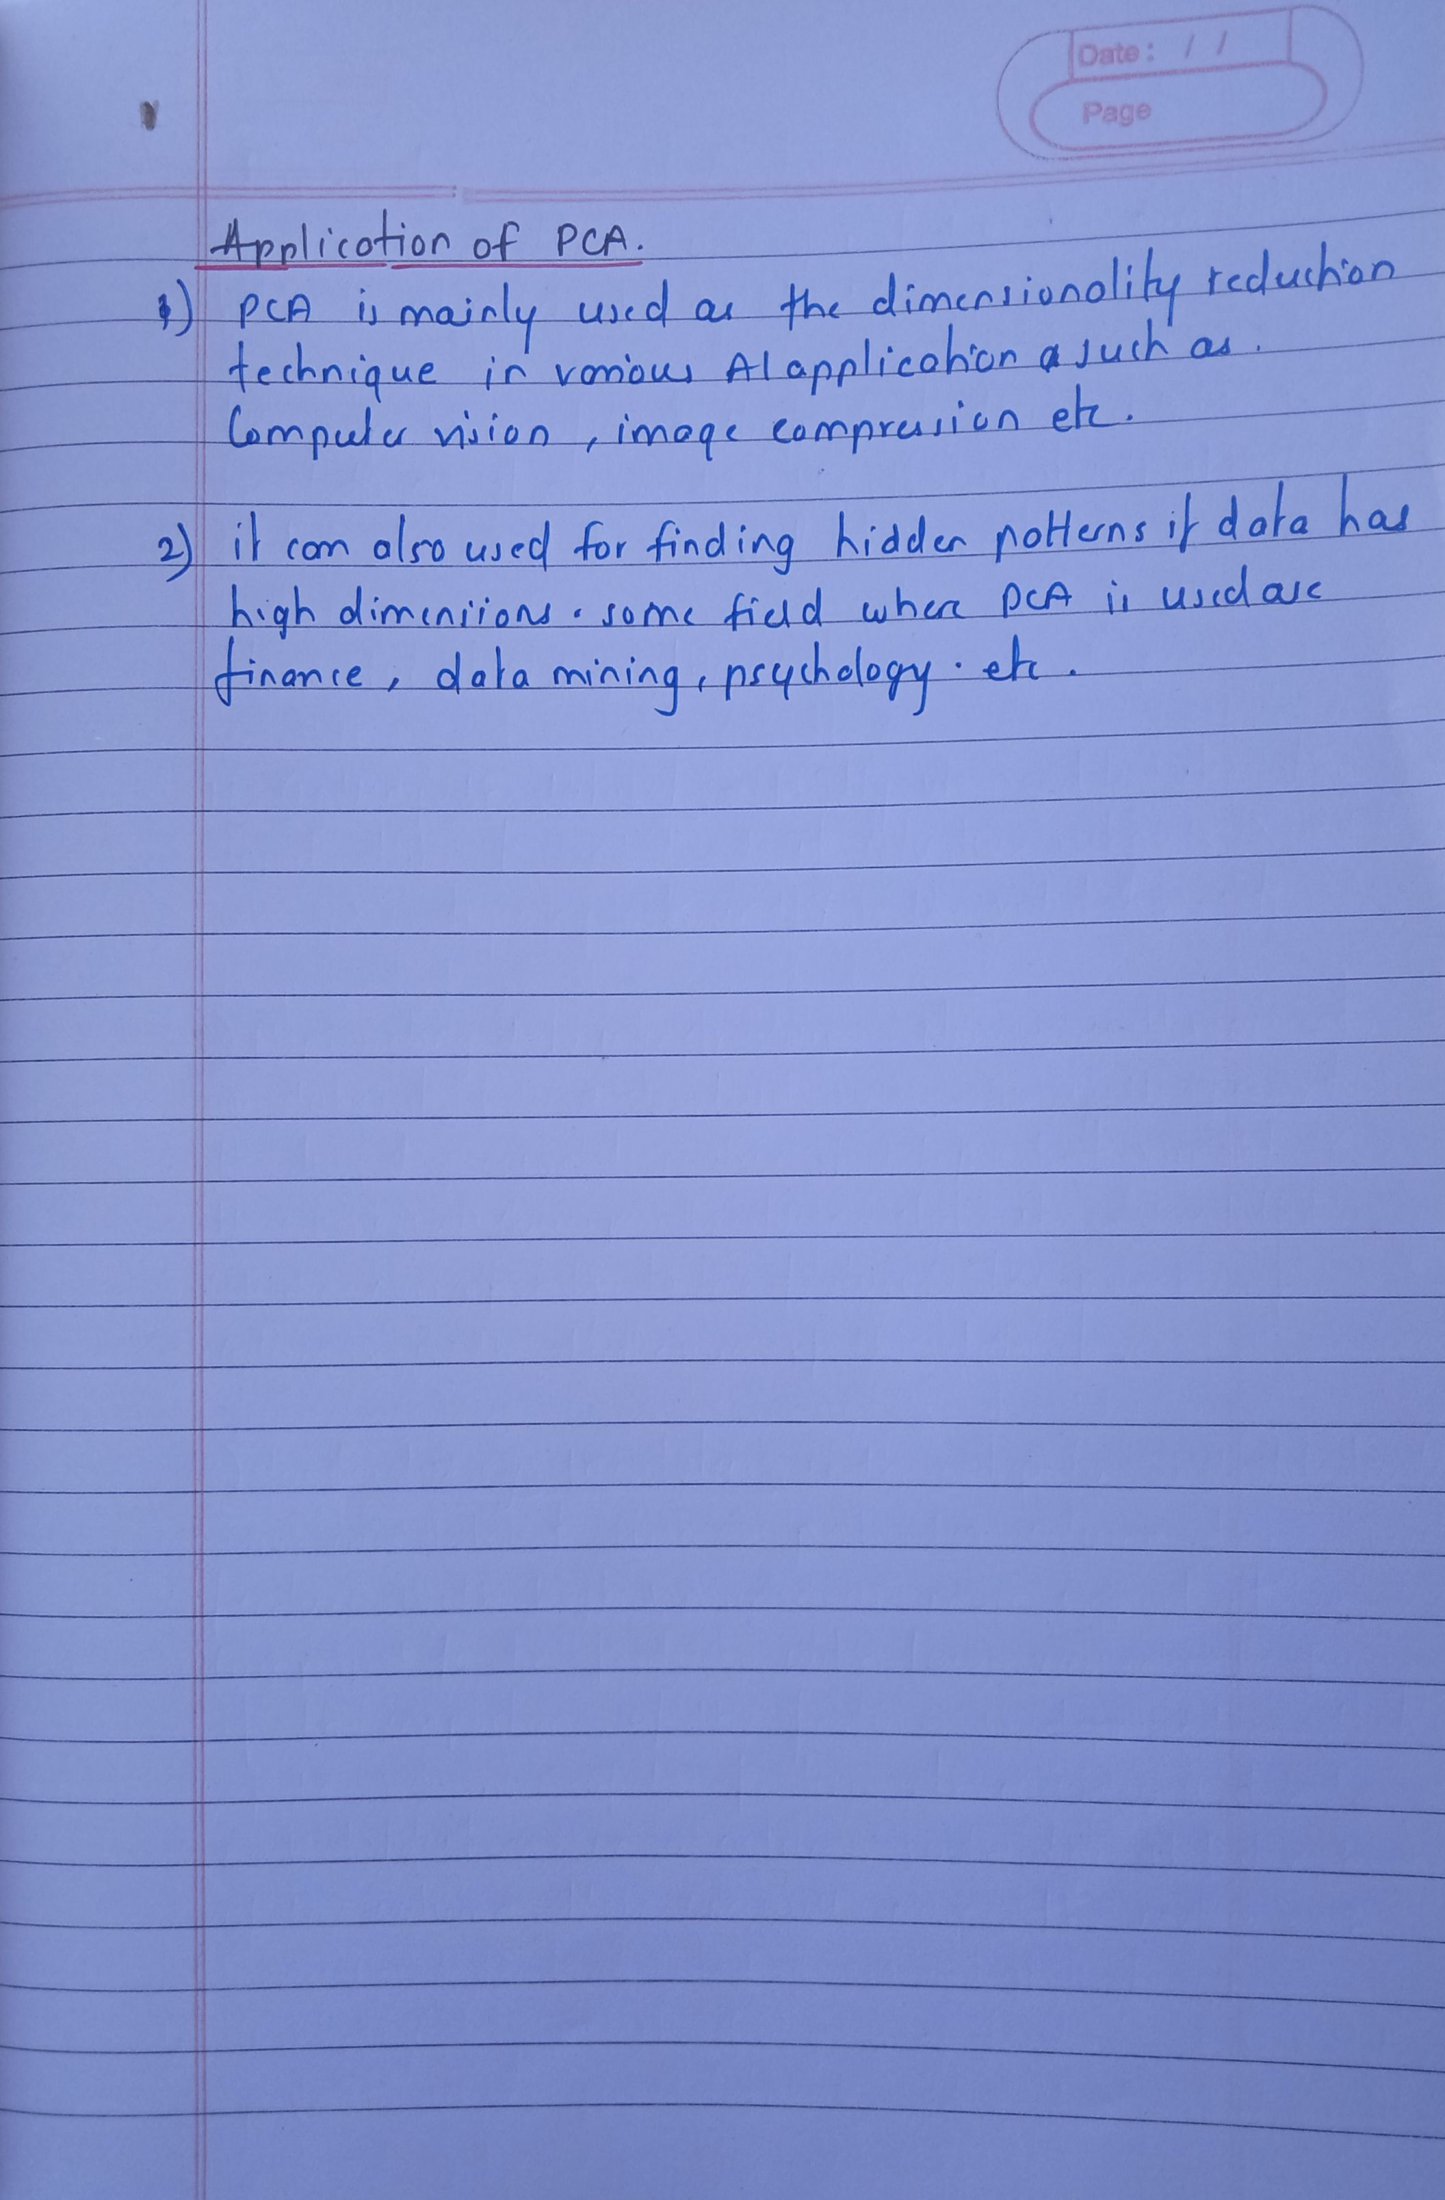 Date: / /
Page
Application of PCA.
1) PCA is mainly used as the dimensionality reduction
technique in various AI application a such as.
Computer vision, image compression etc.
2) it can also used for finding hidden patterns if data has
high dimensions. some field where PCA is used are
finance, data mining, psychology. etc.